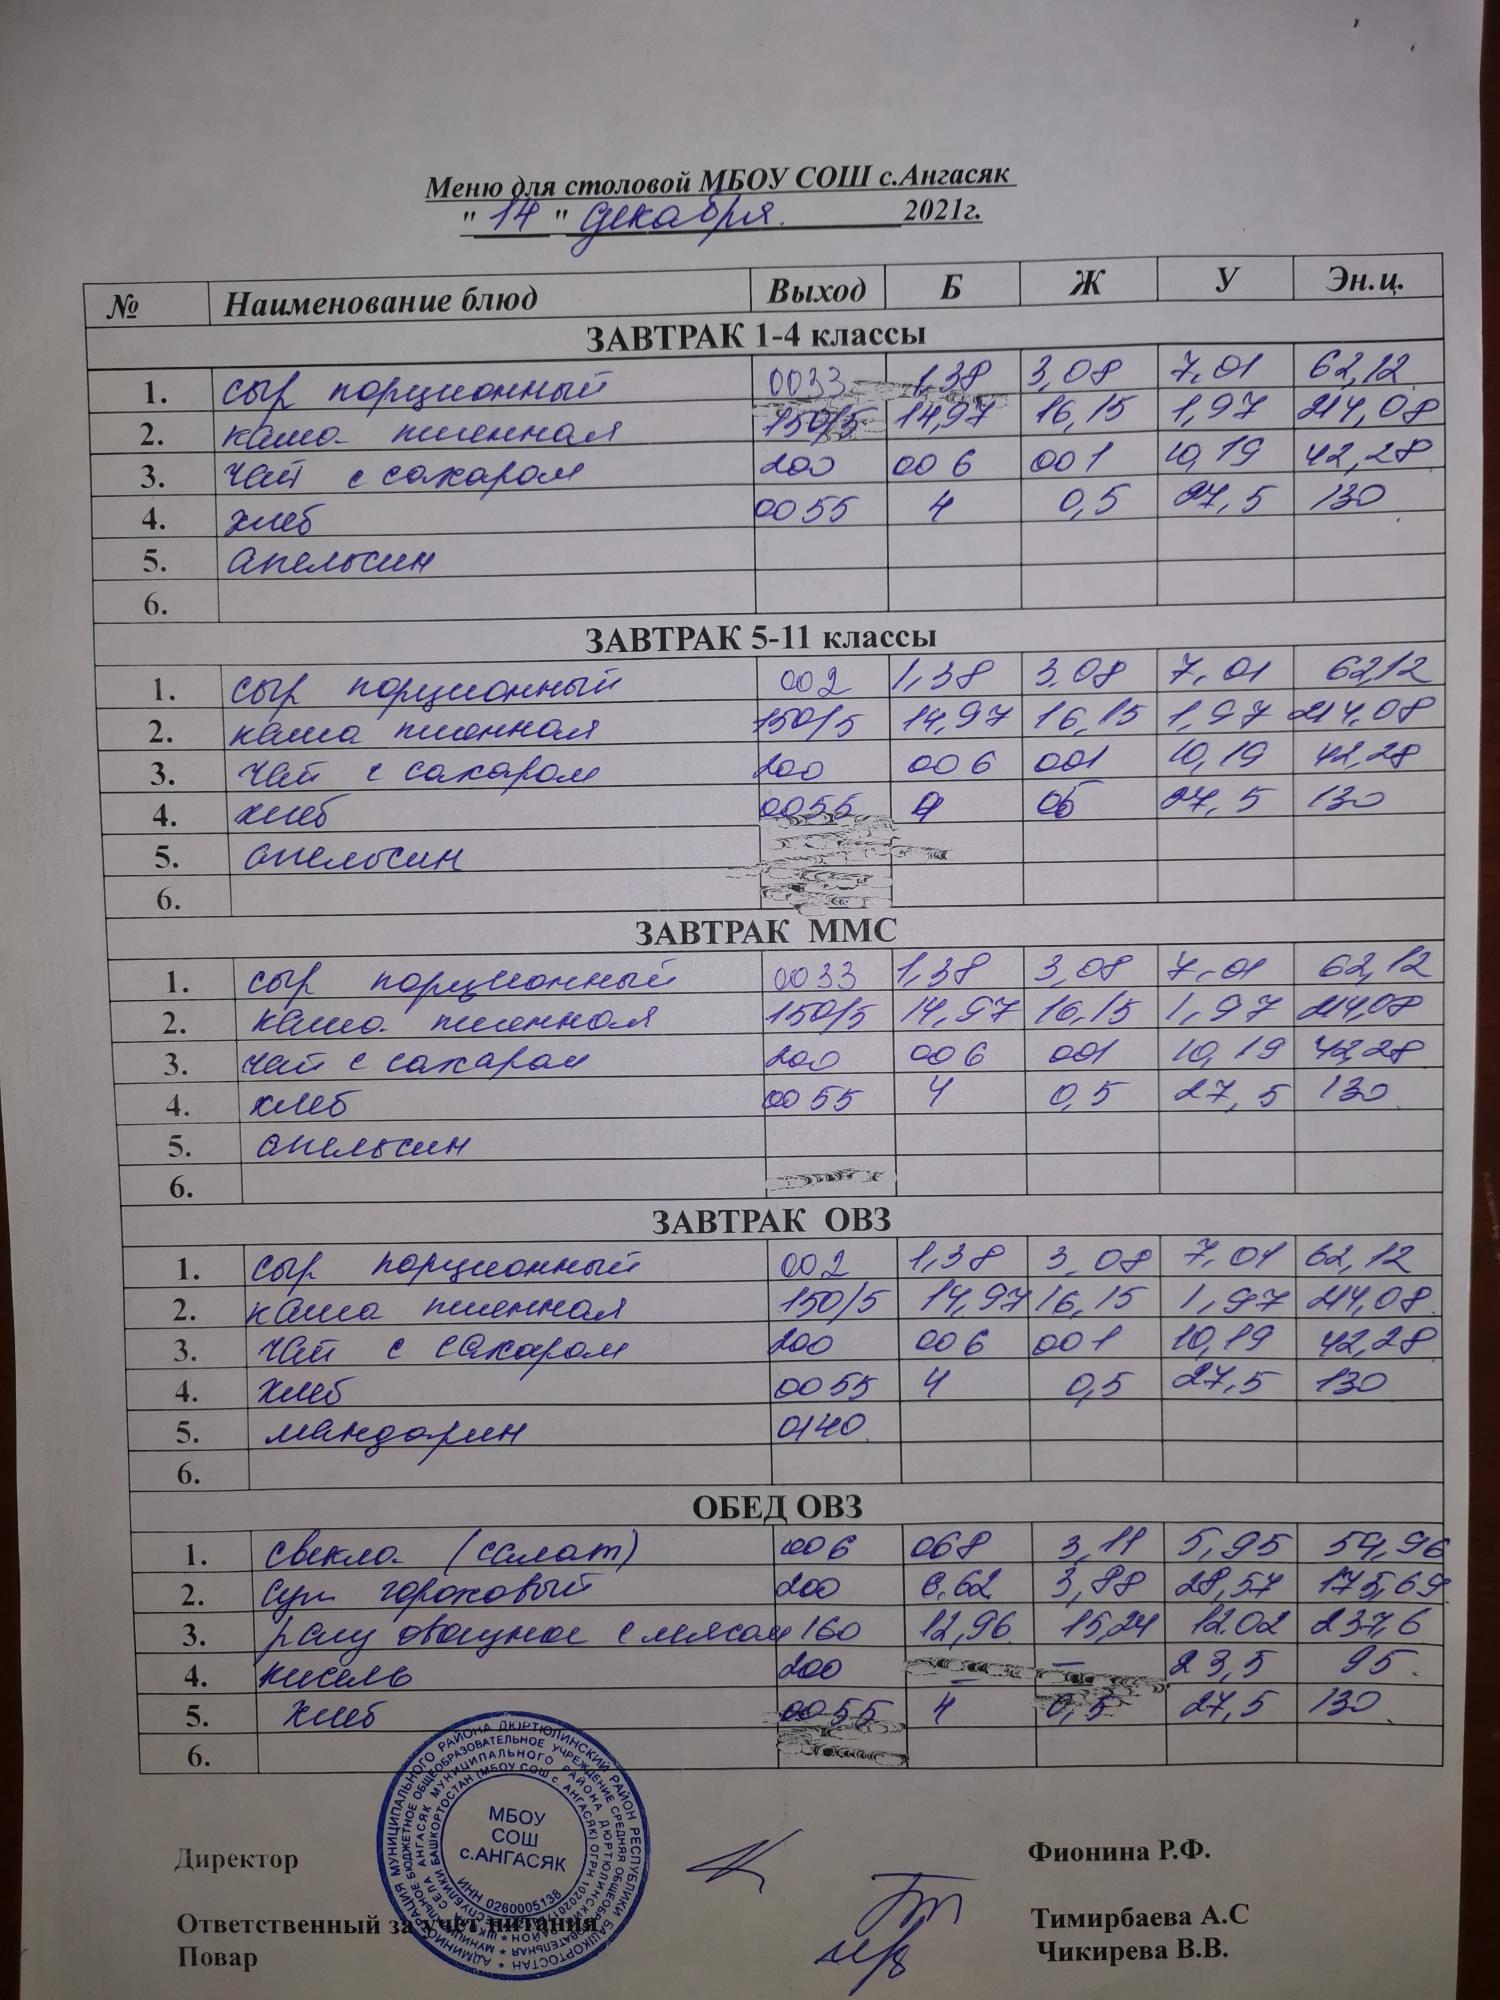 Меню для столовой МБОУ СОШ с.Ангасяк
"14" декабря. 2021г.
№ Наименование блюд Выход Б Ж У Эн.ц.
ЗАВТРАК 1-4 классы
1. сыр порционный 0033 1,38 3,08 7,01 62,12
2. каша пшенная 150/5 14,97 16,15 1,97 214,08
3. чай с сахаром 200 006 001 10,19 42,28
4. хлеб 0055 4 0,5 27,5 130
5. апельсин
6.
ЗАВТРАК 5-11 классы
1. сыр порционный 002 1,38 3,08 7,01 62,12
2. каша пшенная 150/5 14,97 16,15 1,97 214,08
3. чай с сахаром 200 006 001 10,19 42,28
4. хлеб 0055 4 05 27,5 130
5. апельсин
6.
ЗАВТРАК ММС
1. сыр порционный 0033 1,38 3,08 7,01 62,12
2. каша пшенная 150/5 14,97 16,15 1,97 214,08
3. чай с сахаром 200 006 001 10,19 42,28
4. хлеб 0055 4 0,5 27,5 130
5. апельсин
6.
ЗАВТРАК ОВЗ
1. сыр порционный 002 1,38 3,08 7,01 62,12
2. каша пшенная 150/5 14,97 16,15 1,97 214,08
3. чай с сахаром 200 006 001 10,19 42,28
4. хлеб 0055 4 0,5 27,5 130
5. мандарин 0140
6.
ОБЕД ОВЗ
1. свекла (салат) 006 068 3,11 5,95 54,96
2. суп гороховый 200 6,62 3,88 28,57 175,69
3. рагу овощное с мясом 160 12,96 15,24 12.02 237,6
4. кисель 200 – – 23,5 95
5. Хлеб 0055 4 0,5 27,5 130
6.
МБОУ
СОШ
с.АНГАСЯК
ИНН 0260005138
Директор Фионина Р.Ф.
Ответственный за учет питания Тимирбаева А.С
Повар Чикирева В.В.